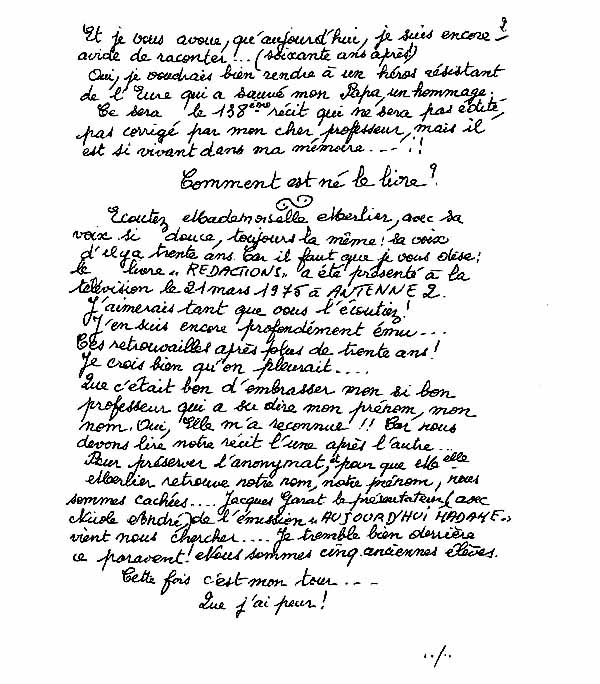 2
Et je vous avoue, qu'aujourd'hui, je suis encore
avide de raconter!.. (soixante ans après)
Oui, je voudrais bien rendre à un héros résistant
de l'Eure qui a sauvé mon Papa un hommage.
Ce sera le 138ème récit qui ne sera pas édité,
pas corrigé par mon cher professeur, mais il
est si vivant dans ma mémoire....!!
Comment est né le livre?
Ecoutez Mademoiselle Merlier, avec sa
voix si douce, toujours la même! sa voix
d'il y a trente ans. Car il faut que je vous dise:
le livre „ REDACTIONS „ a été présenté à la
télévision le 21 mars 1975 à ANTENNE 2.
J'aimerais tant que vous l'écoutiez!
J'en suis encore profondément ému...
Ces retrouvailles après plus de trente ans!
Je crois bien qu'on pleurait....
Que c'était bon d'embrasser mon si bon
professeur qui a su dire mon prénom, mon
nom. Oui, Elle m'a reconnue!! Car nous
devons lire notre récit l'une après l'autre...
Pour préserver l'anonymat, et pour que Melle
Merlier retrouve notre nom, notre prénom, nous
sommes cachées.... Jacques Garat le présentateur (avec
Nicole André) de l'émission „ AUJOURD'HUI MADAME „
vient nous chercher.... Je tremble bien derrière
ce paravent! Nous sommes cinq anciennes élèves.
Cette fois c'est mon tour....
Que j'ai peur!
../..